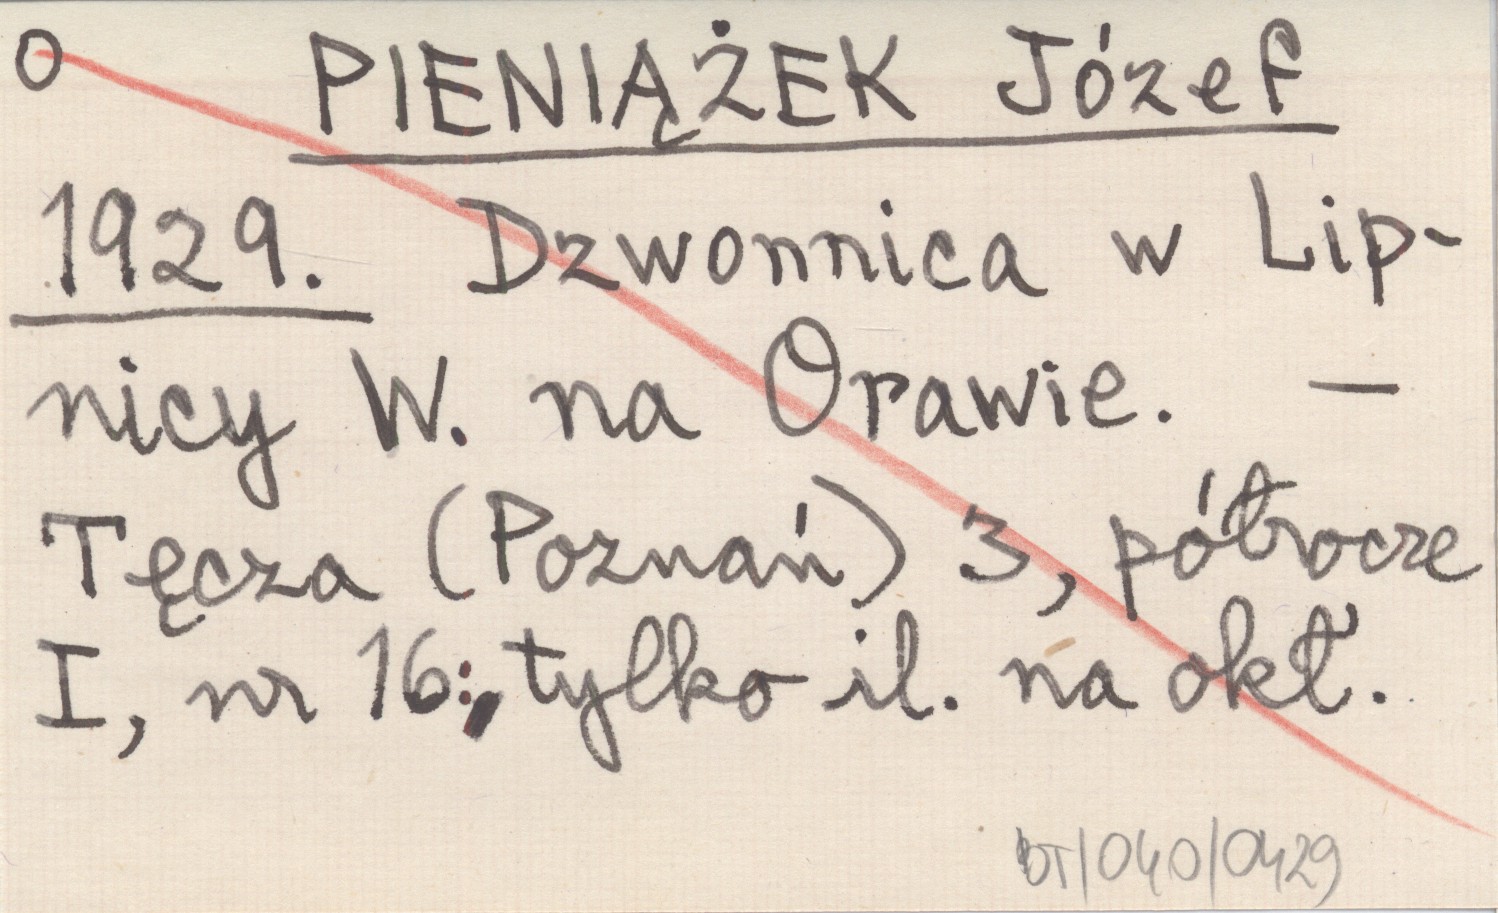 O PIENIĄŻEK Józef
1929. Dzwonnica w Lip-
nicy W. na Orawie. —
Tęcza (Poznań) 3, półrocze
I, nr 16:, tylko il. na okł.
BT/040/0429